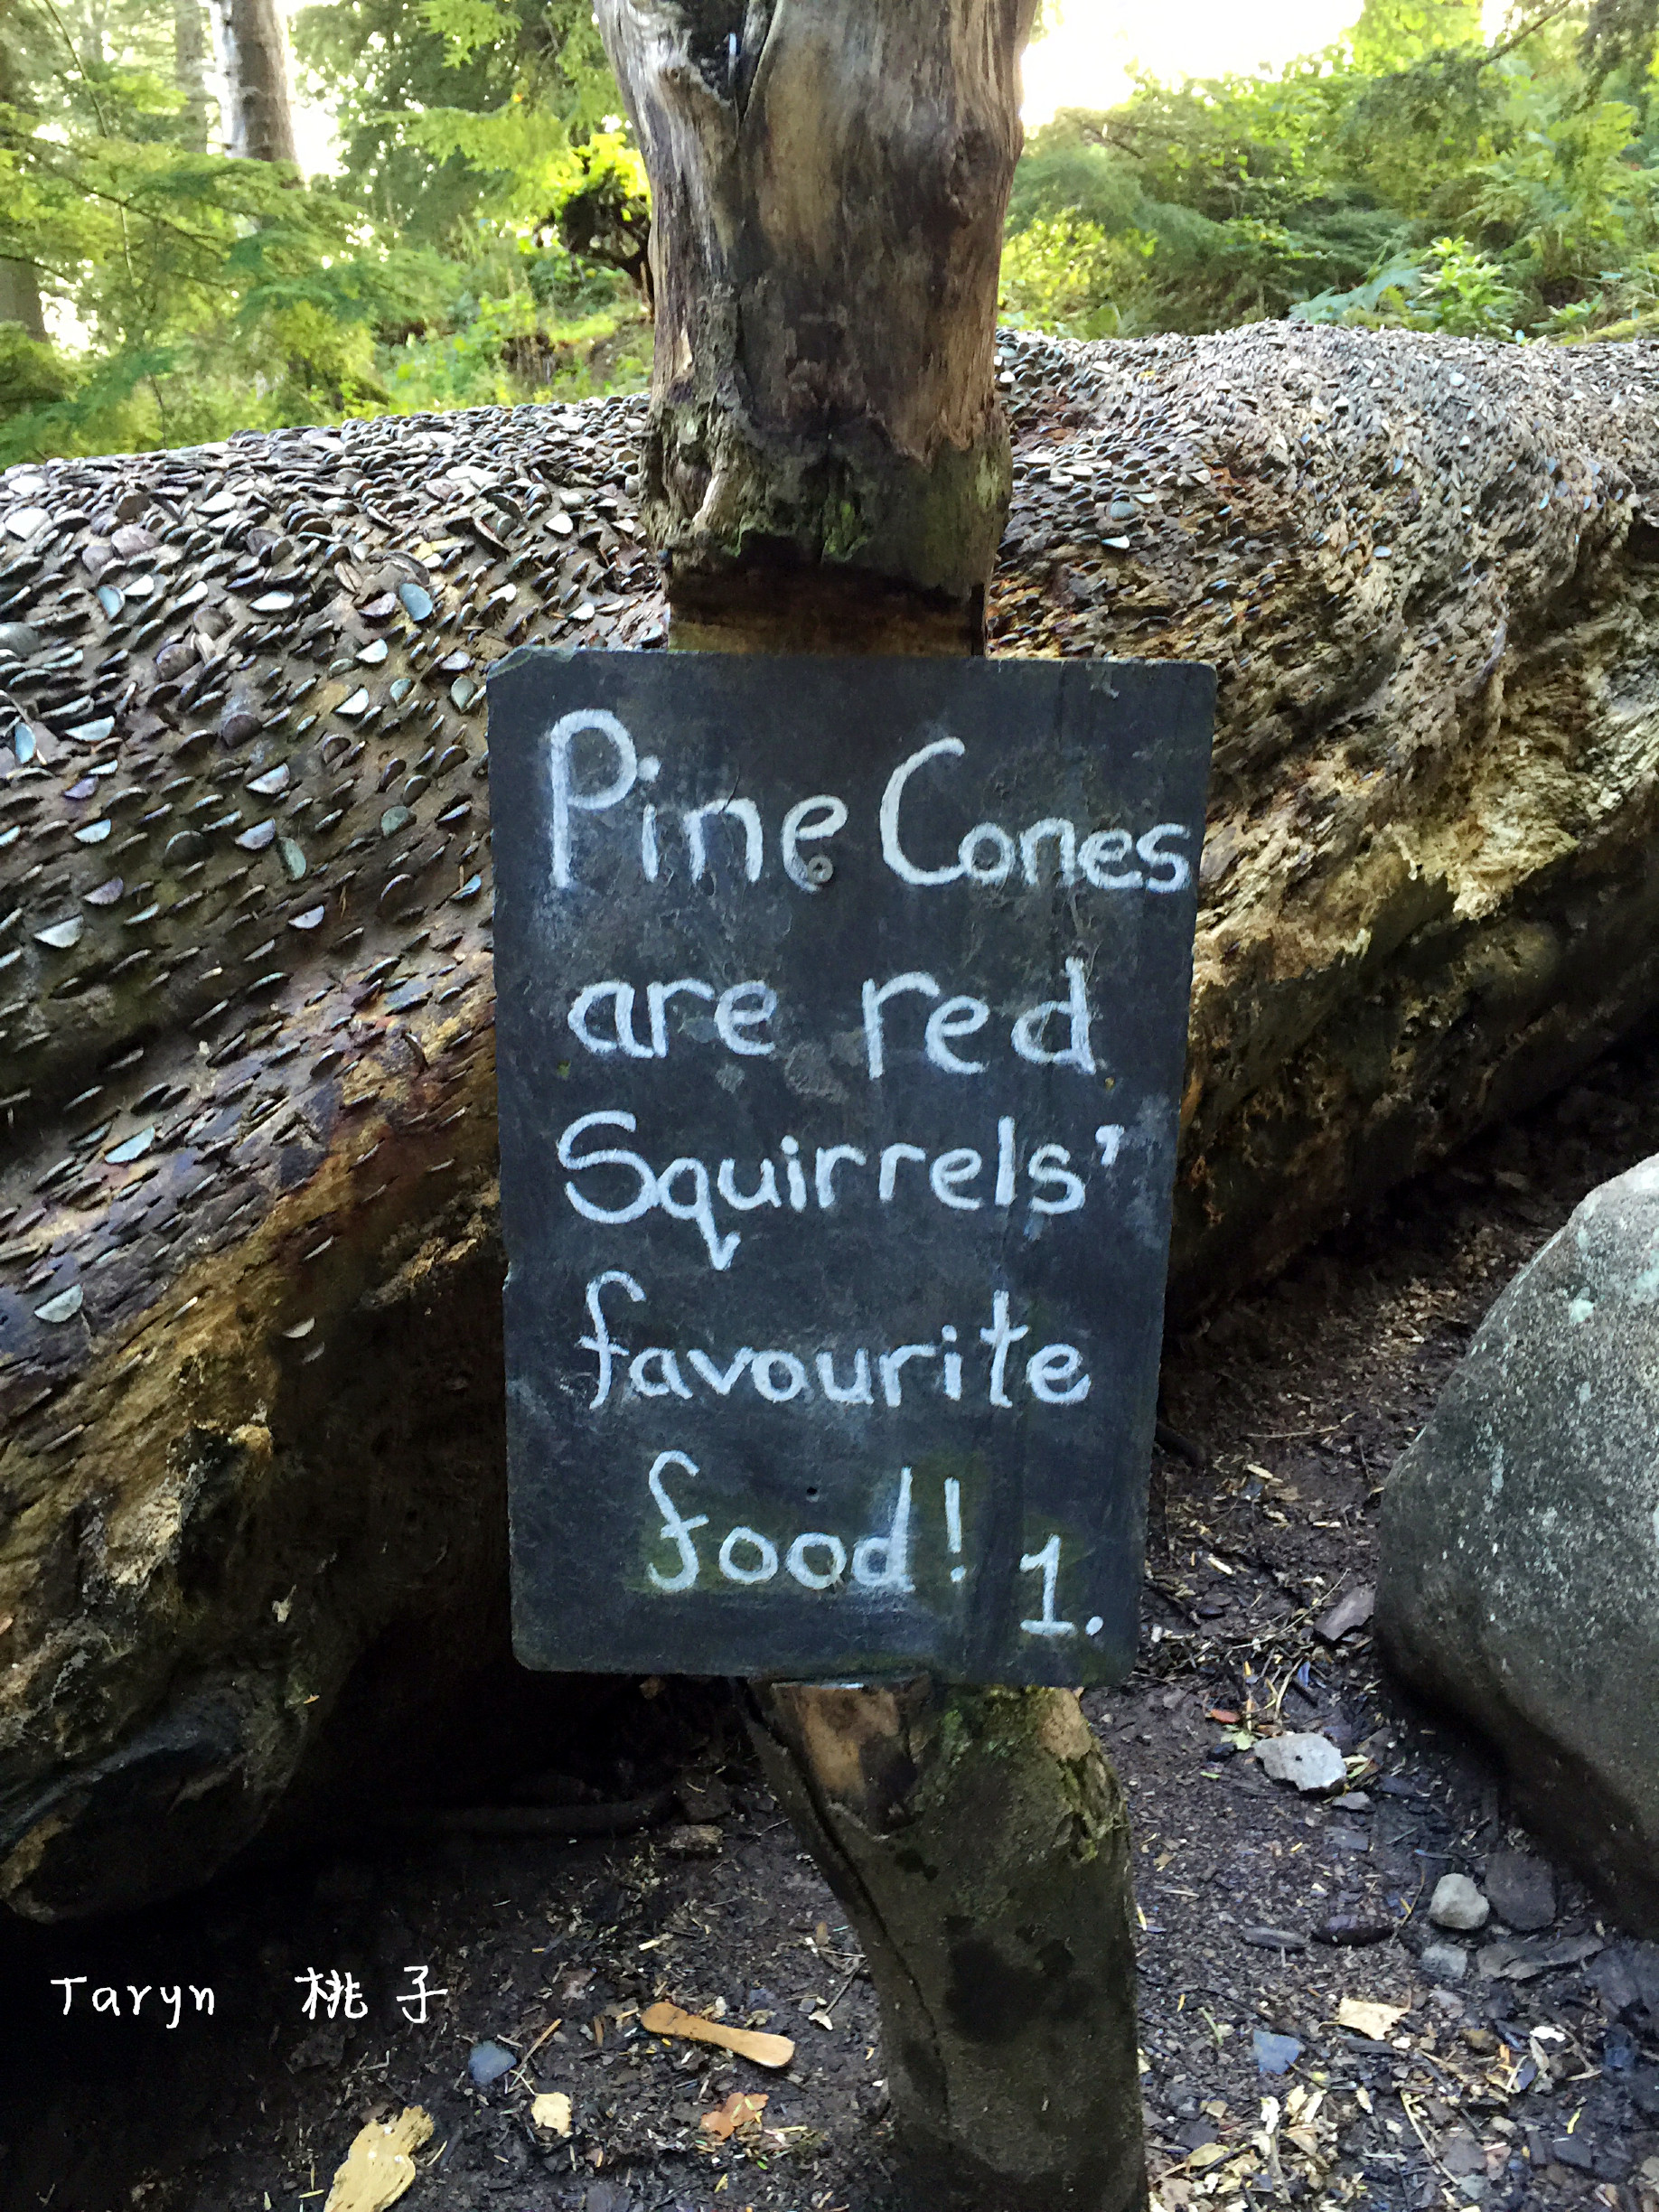 Pine Cones
are red
Squirrels'
favourite
food! 1.
Taryn 桃子